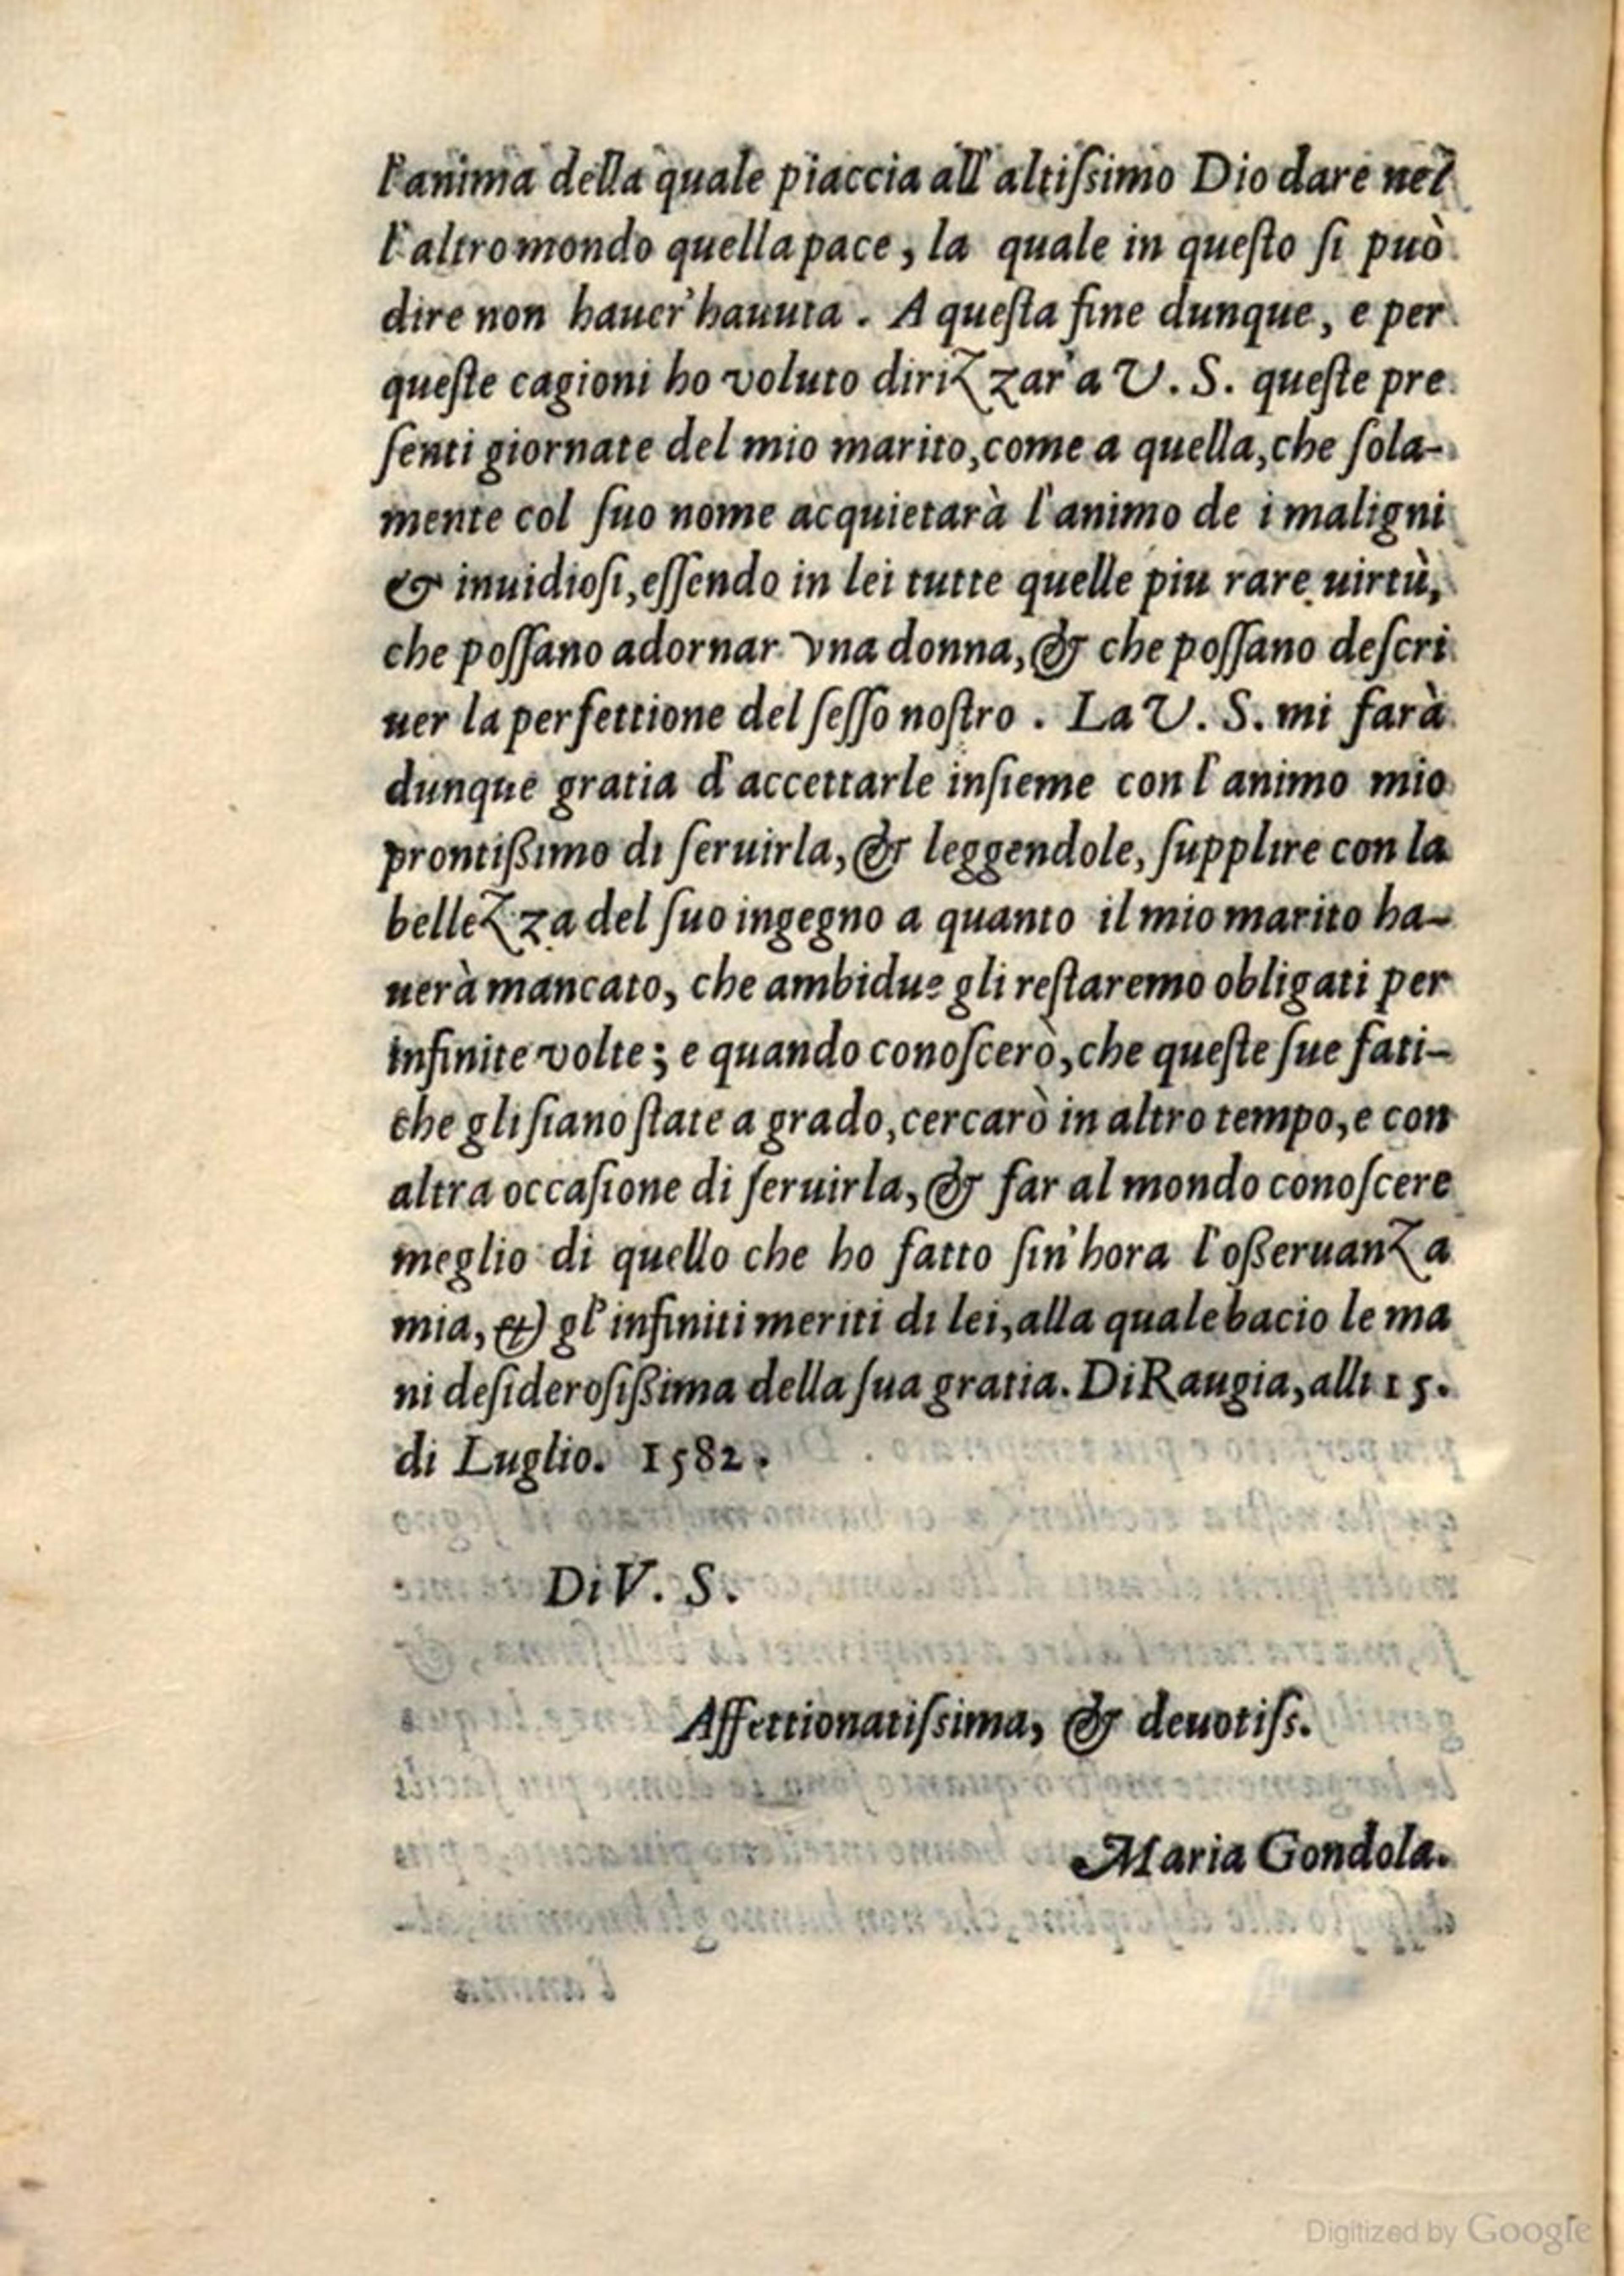 l'anima della quale piaccia all'altiſsimo Dio dare nel
l'altro mondo quella pace, la quale in queſto ſi può
dire non hauer'hauuta. A queſta fine dunque, e per
queſte cagioni ho voluto dirizzar'a V. S. queſte pre
ſenti giornate del mio marito, come a quella, che ſola-
mente col ſuo nome acquietarà l'animo de i maligni
& inuidioſi, eſſendo in lei tutte quelle piu rare uirtù,
che poſſano adornar vna donna, & che poſſano deſcri
uer la perfettione del ſeſſo noſtro. La V. S. mi farà
dunque gratia d'accettarle inſieme con l'animo mio
prontißimo di ſeruirla, & leggendole, ſupplire con la
bellezza del ſuo ingegno a quanto il mio marito ha-
uerà mancato, che ambidue gli reſtaremo obligati per
infinite volte; e quando conoſcerò, che queſte ſue fati-
che gli ſiano ſtate a grado, cercarò in altro tempo, e con
altra occaſione di ſeruirla, & far al mondo conoſcere
meglio di quello che ho fatto ſin'hora l'oßeruanza
mia, & gl'infiniti meriti di lei, alla quale bacio le ma
ni deſideroſißima della ſua gratia. Di Raugia, alli 15.
di Luglio. 1582.
Di V. S.
Affettionatiſsima, & deuotiſs.
Maria Gondola.
Digitized by Google